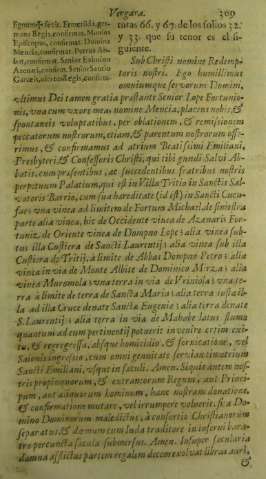 Vergara. 309
Egmono
Regis, confirmat. Munius
Episcopus, confirmat. Domina
Mencia, confirmat. Petrus Az-
nari, confirmat. Senior Eximino
Azenari, confirmat. Senior Sancio
Garzeis, confirmat. Regis, confir-
turas 66. y 67. de los folios 32.
y 33. que su tenor es el si-
guiente.
Sub Christi nomine Redemp-
toris nostri. Ego humillimus
omniumque servorum Domini,
vltimus Dei tamen gratia prestante Senior Lope Enecunio-
nis, vna cum vxore meas nomine Mencia, placens nobis, &
spontaneis voluptatibus, per oblationem, & remissionem
peccatorum nostrorum, etiam, & parentum nostrorum offe-
rimus, & confirmamus ad atrium Beatissimi Emiliani,
Presbyteri & Confessoris Christi, qui tibi gundi Salvi Ab-
batis, cum presentibus, at succedentibus fratribus nostris
perpetuum Palatium, qui est in Villa Tritio in Sanctis Sal-
vatoris Barrio, cum sua hareditate (id est) in Sancti Cucu-
fati vna vinea ad limitem de Fortum Michael de sinistra
parte alia vinea, hic de Occidente vinea de Azenaris For-
tuniz, de Oriente vinea de Dompno Lope; alia vinea sub-
tus illa Custiera de Sancti Laurentij; alia vinea sub illa
Custiera de Tritio, à limite de Abbas Dompno Petro; alia
vinea in via de Monte Albite de Dominico Mirza; alia
vinea Maromola; vna terra in via de Veriniosa; vna te-
rra à limite de terra de Sancta Maria; alia terra
la ad illa Cruce denate Sancta Eugenia; alia terra denate
S. Laurentij; alia terra in via de Mahobe latus flumi
quantum ad eum pertinentij potuerit invenire
to, & regressa, absque homicidio, & fornicatione, vel
Saionis ingressa, cum omni genuitate serviant in atrium
Sancti Emiliani, vsque in saeculi. Amen. Siquis autem nos-
tris propinquorum, & extraneorum Regum, aut Princi-
pum, aut aliquorum hominum, hanc nostram donatione,
& confirmatione mutare, vel irrumpere voluerit, sit a Do-
mino Dominorum maledictus, à consortio Christianorum
separatus, & damnatum cum Iuda traditore in inferni bara-
tro per cuncta saecula submersus. Amen. Insuper saecularia
damna afflictus partem regalem decem exolvat libras auri,
&